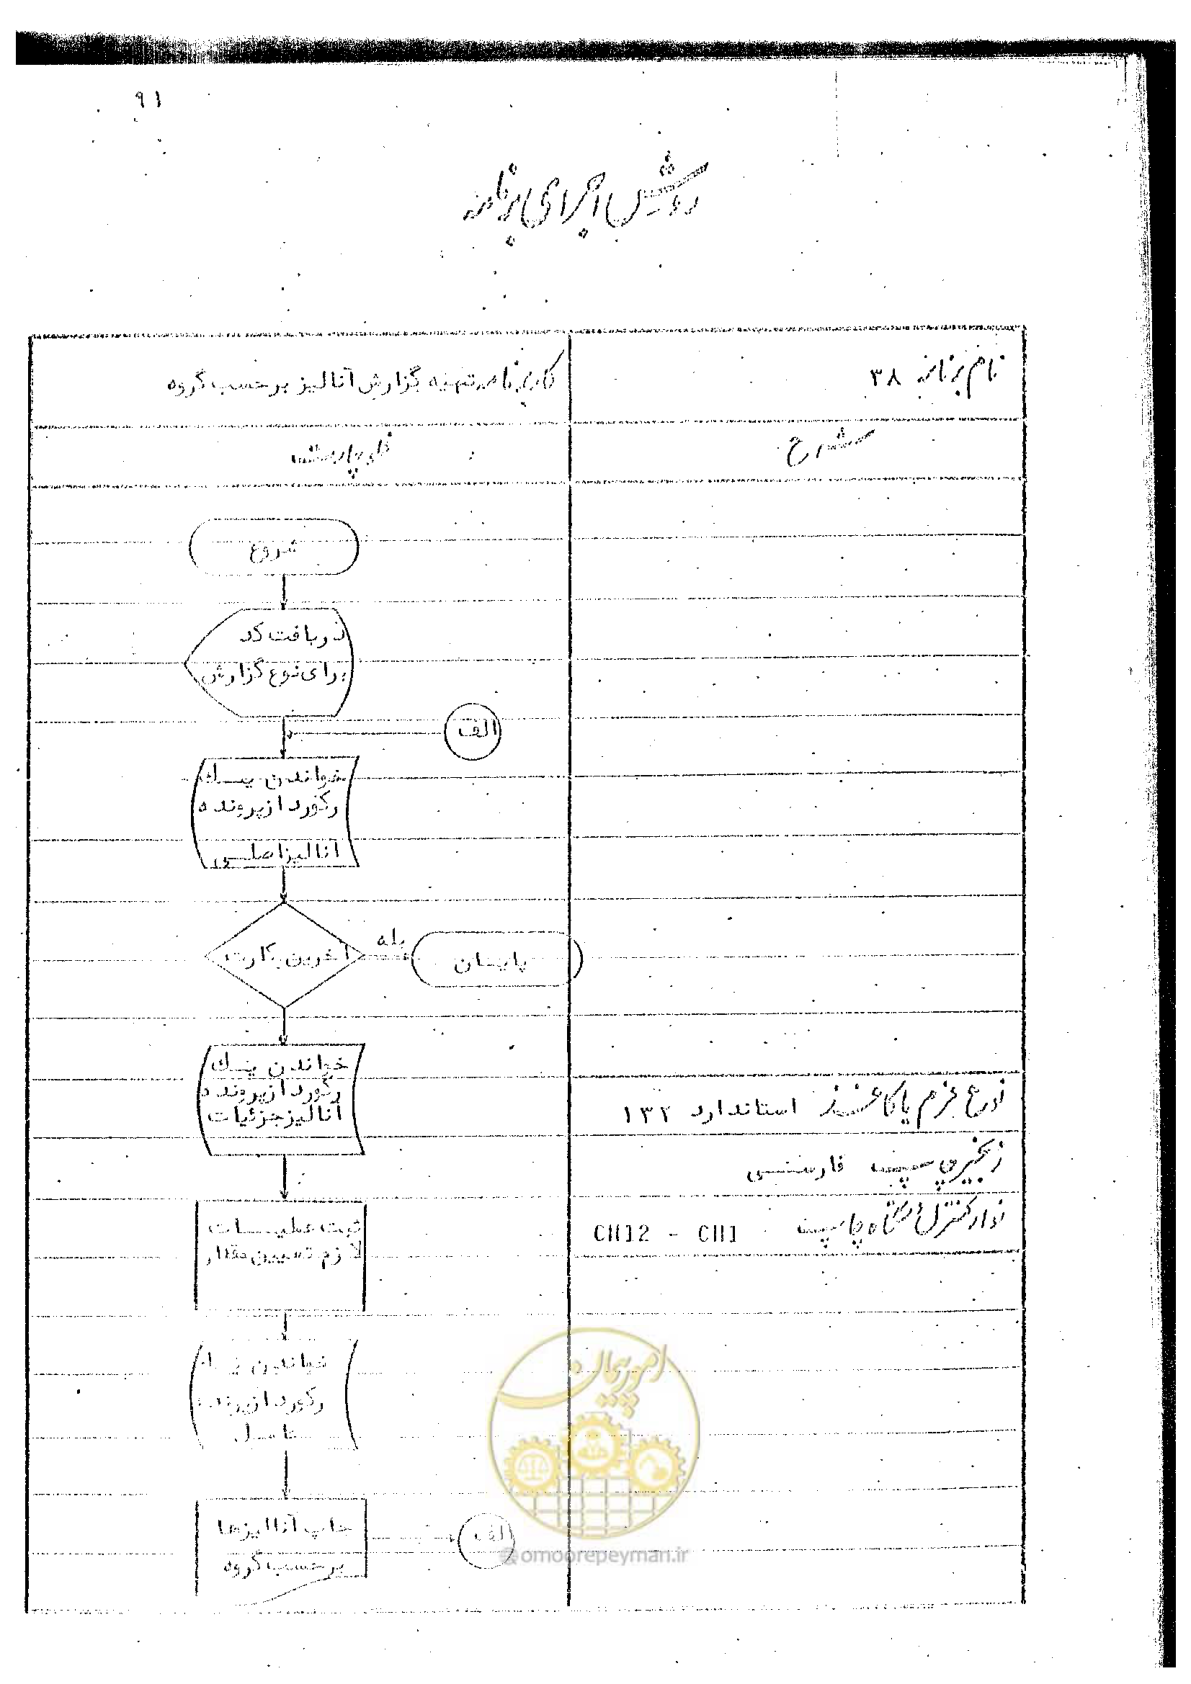 ۹۱
روش اجرای برنامه
نام برنامه ۳۸
کار برنامه تهیه گزارش آنالیز برحسب گروه
شرح
فلوچارت
شروع
دریافت کد
برای نوع گزارش
الف
خواندن یک
رکورد از پرونده
آنالیز اصلی
آخرین کارت
بله
پایان
خواندن یک
رکورد از پرونده
آنالیز جزئیات
نوع فرم یا کاغذ استاندارد ۱۳۲
زنجیر چاپ فارسی
ثبت عملیات
لازم تعیین مقدار
نوار کنترل دستگاه چاپ CH12 - CH1
خواندن یک
رکورد از پرونده
چاپ آنالیزها
برحسب گروه
الف
امور پیمان
@omoorepeyman.ir